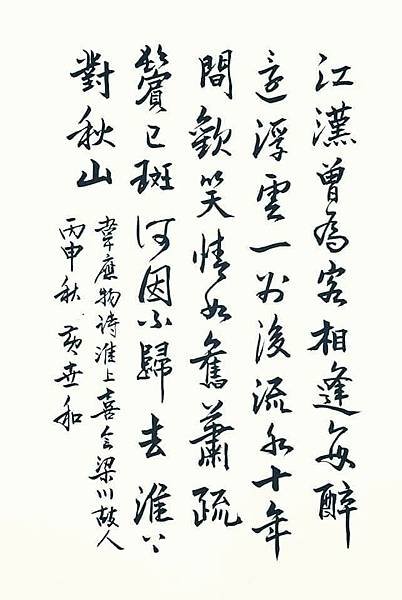 江漢曾為客相逢每醉
還浮雲一別後流水十年
間歡笑情如舊蕭疏
鬢已斑何因不歸去淮上
對秋山
韋應物诗淮上喜会梁川故人
丙申秋 黄世和